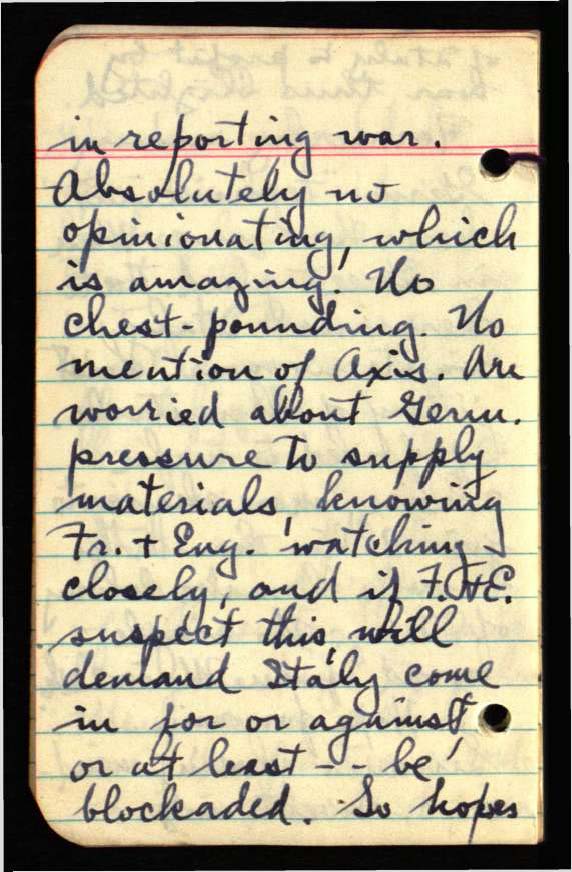 in reporting war.
Absolutely no
opinionating, which
is amazing. No
chest-pounding. No
mention of Axis. Are
worried about Germ.
pressure to supply
materials, knowing
Fr. + Eng. watching
closely, and if F. + E.
suspect this, will
demand Italy come
in for or against,
or at least -- be
blockaded. So hopes